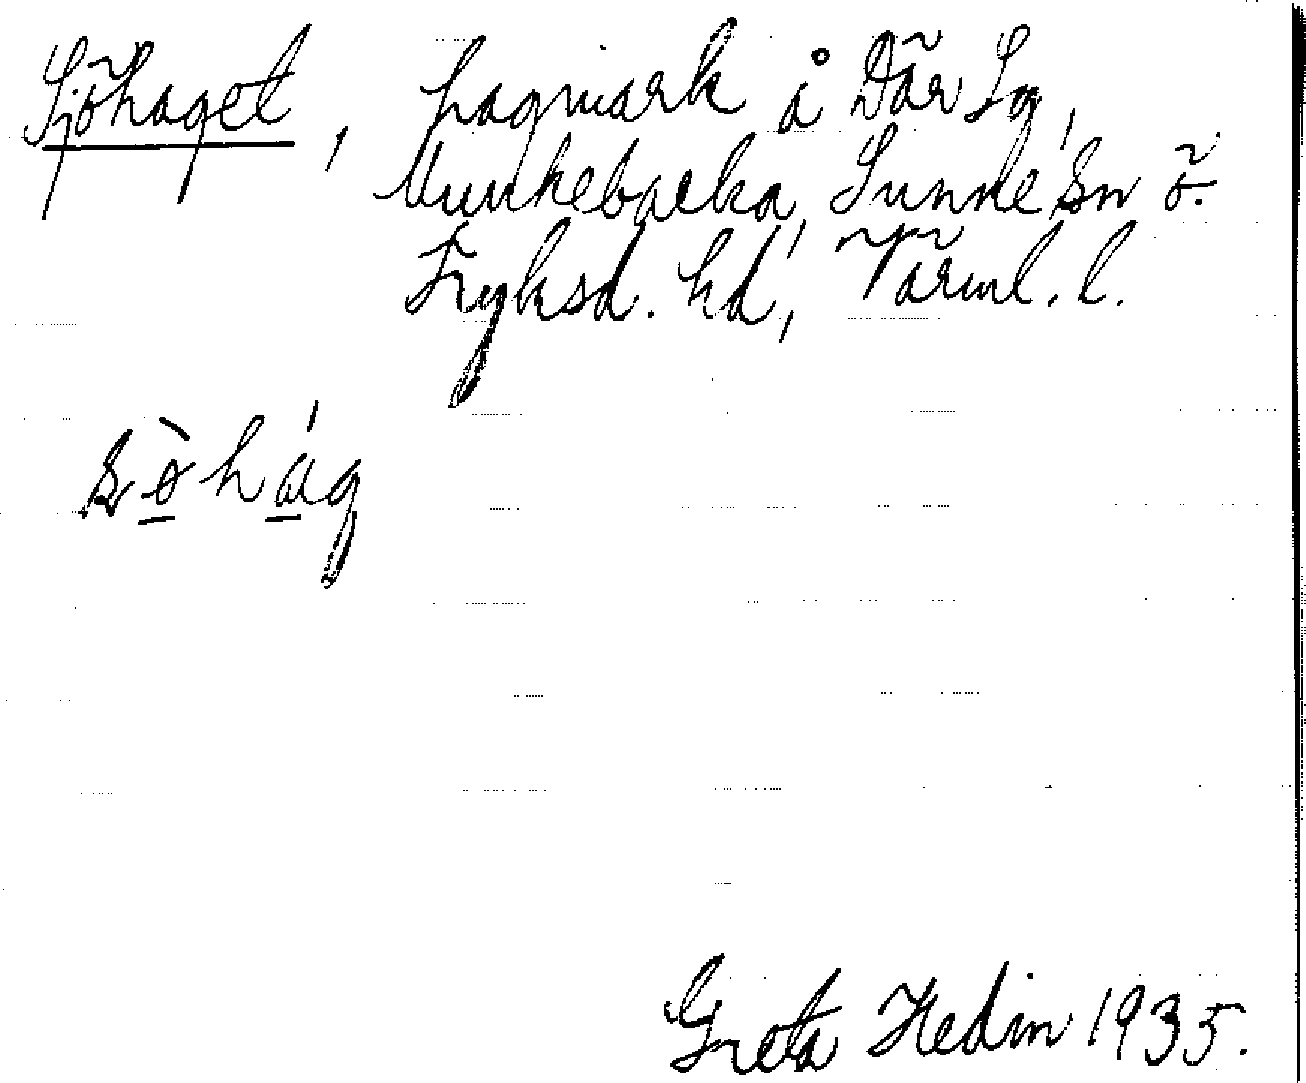 Sjöhaget, hagmark å Där Sg,
Munkebacka, Sunne sn ö.
Fryksd. hd, Värml. l.
sòhág
Greta Hedin 1935.